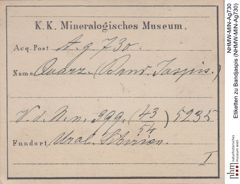 K. K. Mineralogisches Museum.
Acq. Post A. g. 730.
Name Quarz. (Band Jaspis.)
V. d. N. n. 299. (43/54) 5235
Fundort Ural. Sibirien.
I
Etiketten zu Bandjaspis (NHMW-MIN-Ag730)
©NHMW-MIN-Ag730
nhm